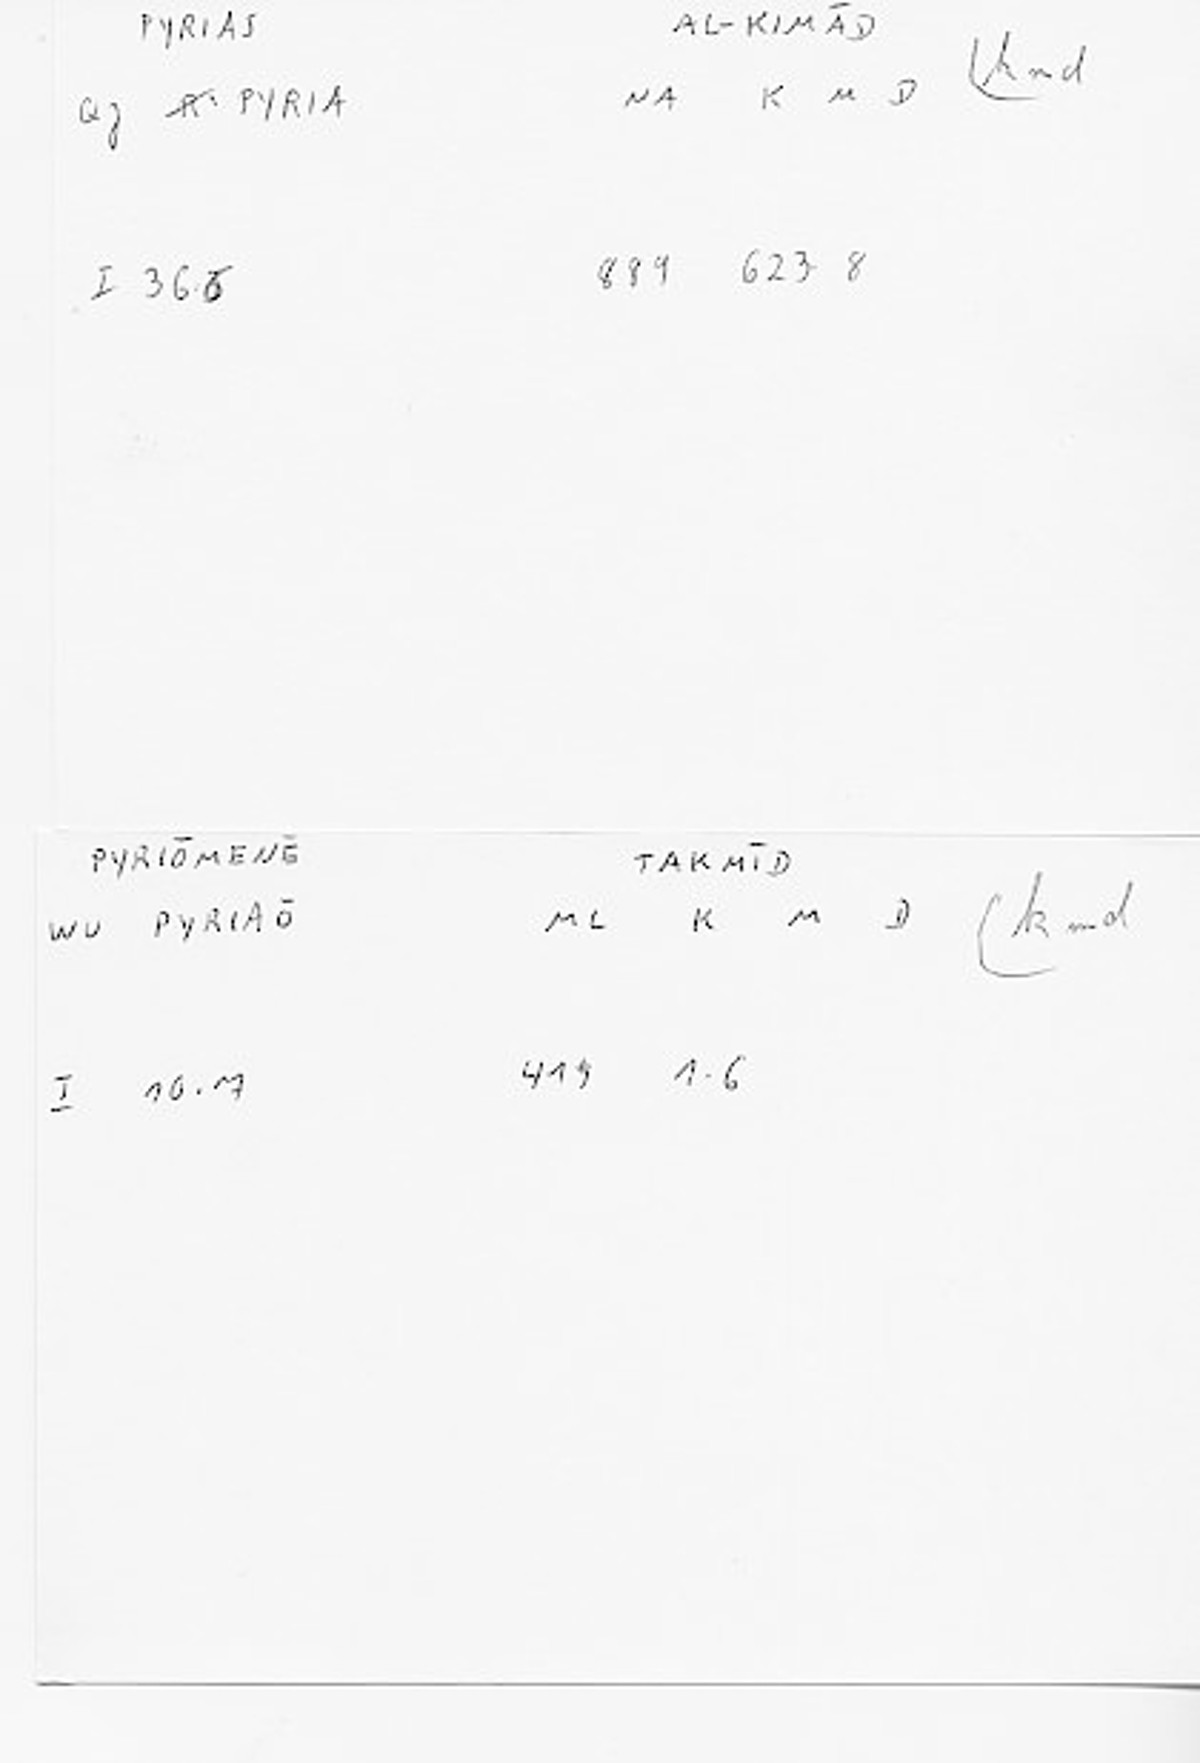 PYRIAS AL-KIMĀD
Qj PYRIA NA K M D kmd
I 36.6 889 623 8
PYRIŌMENĒ TAKMĪD
WU PYRIAŌ ML K M D kmd
I 10.17 419 1.6